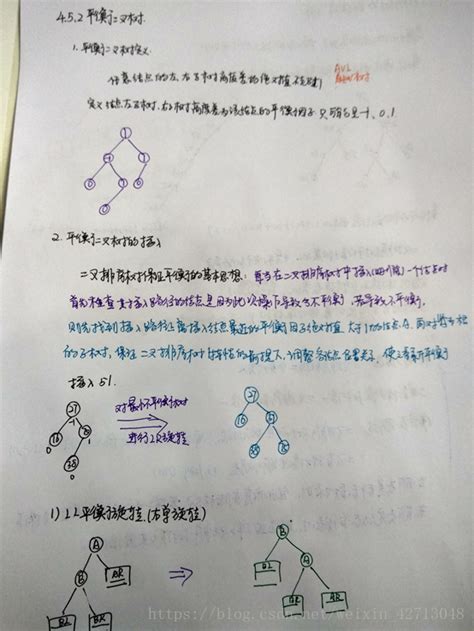 4.5.2 平衡二叉树.
1. 平衡二叉树定义
任意结点的左、右子树高度差的绝对值不超过1
AVL
定义结点左子树、右子树高度差为该结点的平衡因子 只可能是-1、0、1
2. 平衡二叉树的插入
二叉排序树保证平衡的基本思想: 每当在二叉排序树中插入(删除)一个结点时
首先检查其插入路径的结点是否因此次操作导致不平衡, 若导致不平衡,
则先找到插入路径上离插入结点最近的平衡因子绝对值大于1的结点A, 再对以A为根
的子树, 保证二叉排序树特性的前提下, 调整各结点位置关系, 使之重新平衡
插入51.
对最小不平衡子树
进行LR旋转
27
16
1) LL平衡旋转.(右单旋转)
A
B
BL
BR
AR
⇒
B
A
BL
BR
AR
https://blog.csdn.net/weixin_42713048